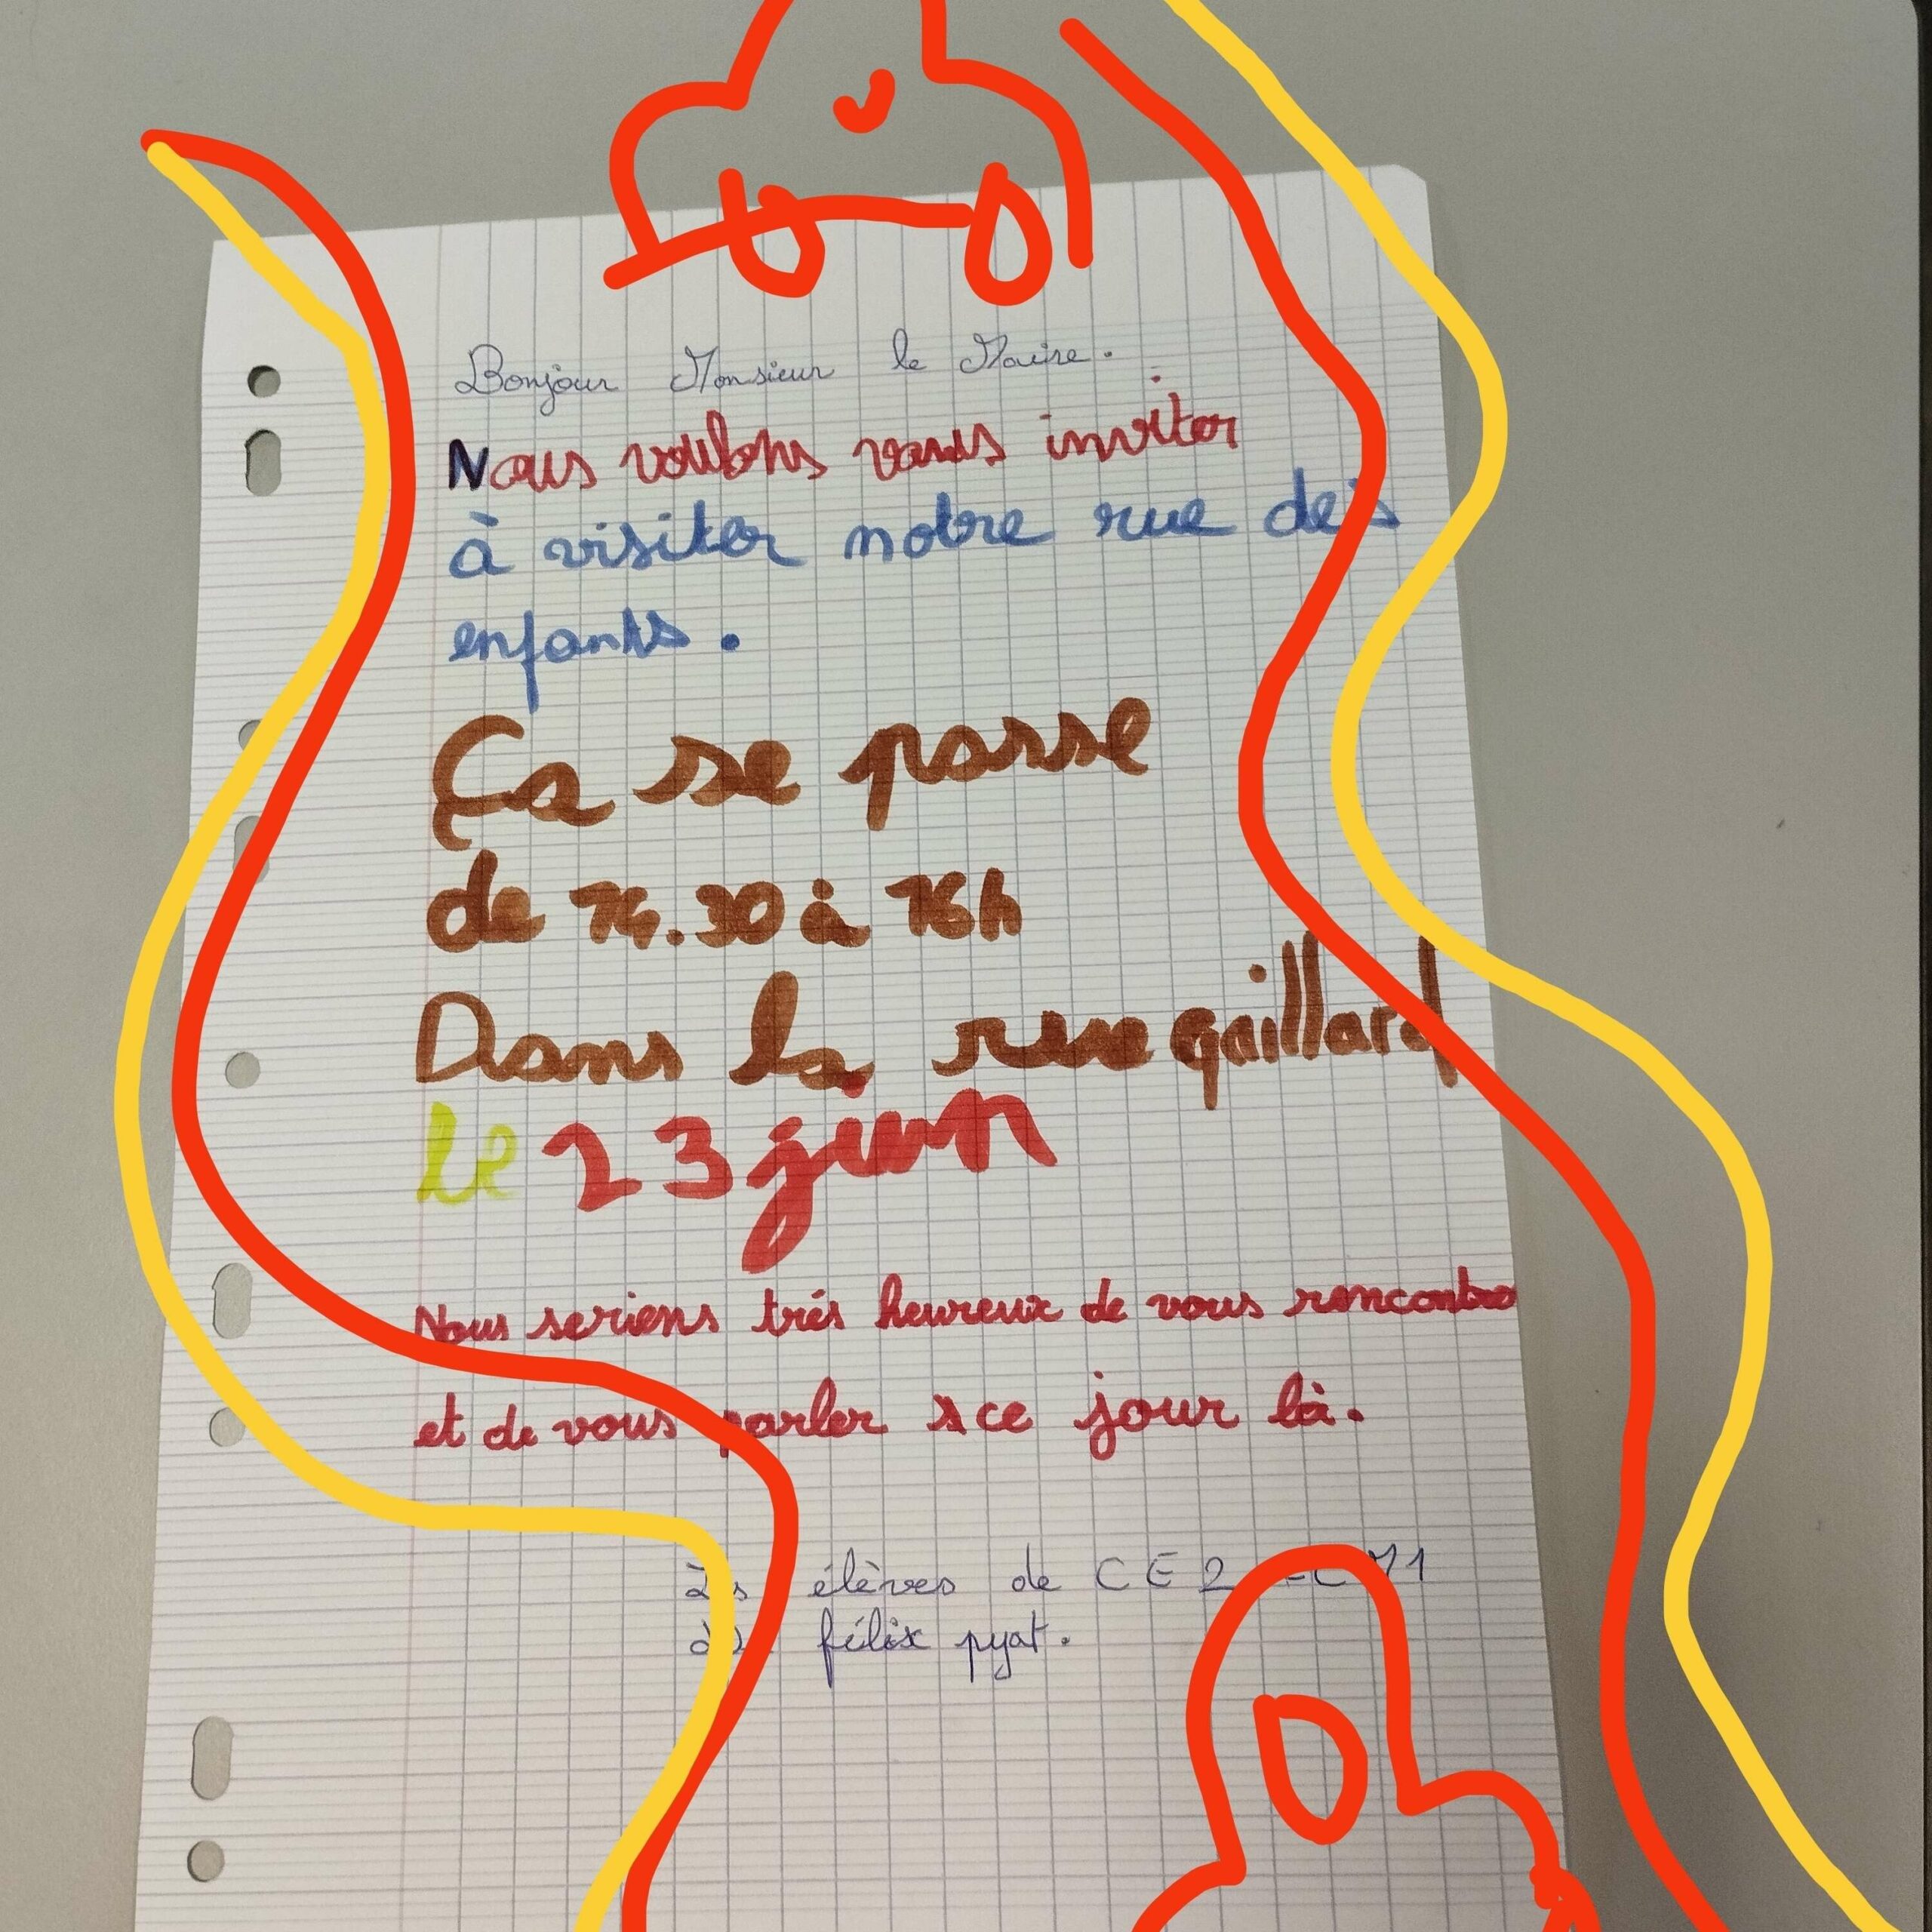 Bonjour Monsieur le Maire.
Nous voulons vous inviter
à visiter notre rue des
enfants.
Ça se passe
de 14.30 à 16h
Dans la rue gaillard
le 23 juin
Nous seriens trés heureux de vous rencontre
et de vous parler ce jour là.
élèves de CE2
félix pyat.